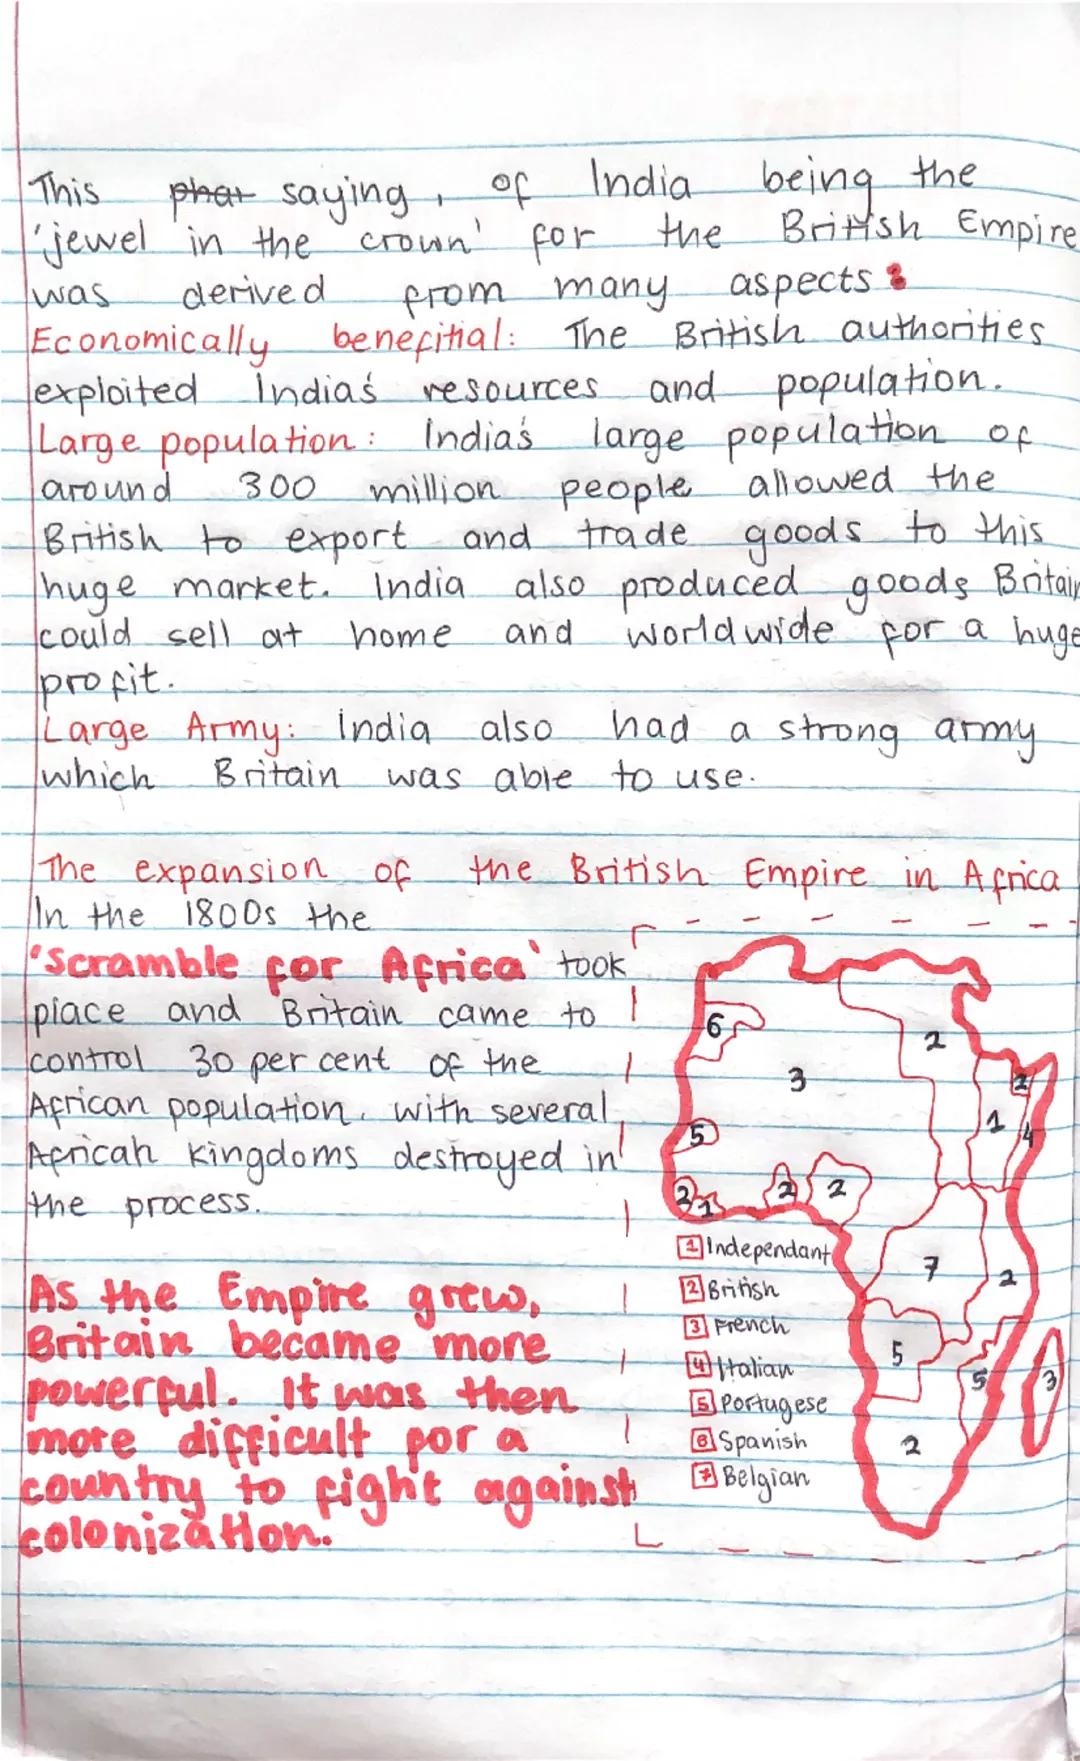 This phat saying, of India being the
'jewel in the crown' for the British Empire
was derived from many aspects:
Economically benefitial: The British authorities
exploited India's resources and population.
Large population: India's large population of
around 300 million people allowed the
British to export and trade goods to this
huge market. India also produced goods Britain
could sell at home and worldwide for a huge
profit.
Large Army: India also had a strong army
which Britain was able to use.
The expansion of the British Empire in Africa
In the 1800s the
'Scramble for Africa' took
place and Britain came to
control 30 per cent of the
African population, with several
African kingdoms destroyed in
the process.
As the Empire grew,
Britain became more
powerful. It was then
more difficult for a
country to fight against
colonization.
6
2
3
2
1
4
5
2
1
2
2
7
2
5
5
3
2
1 Independant
2 British
3 French
4 Italian
5 Portugese
6 Spanish
7 Belgian